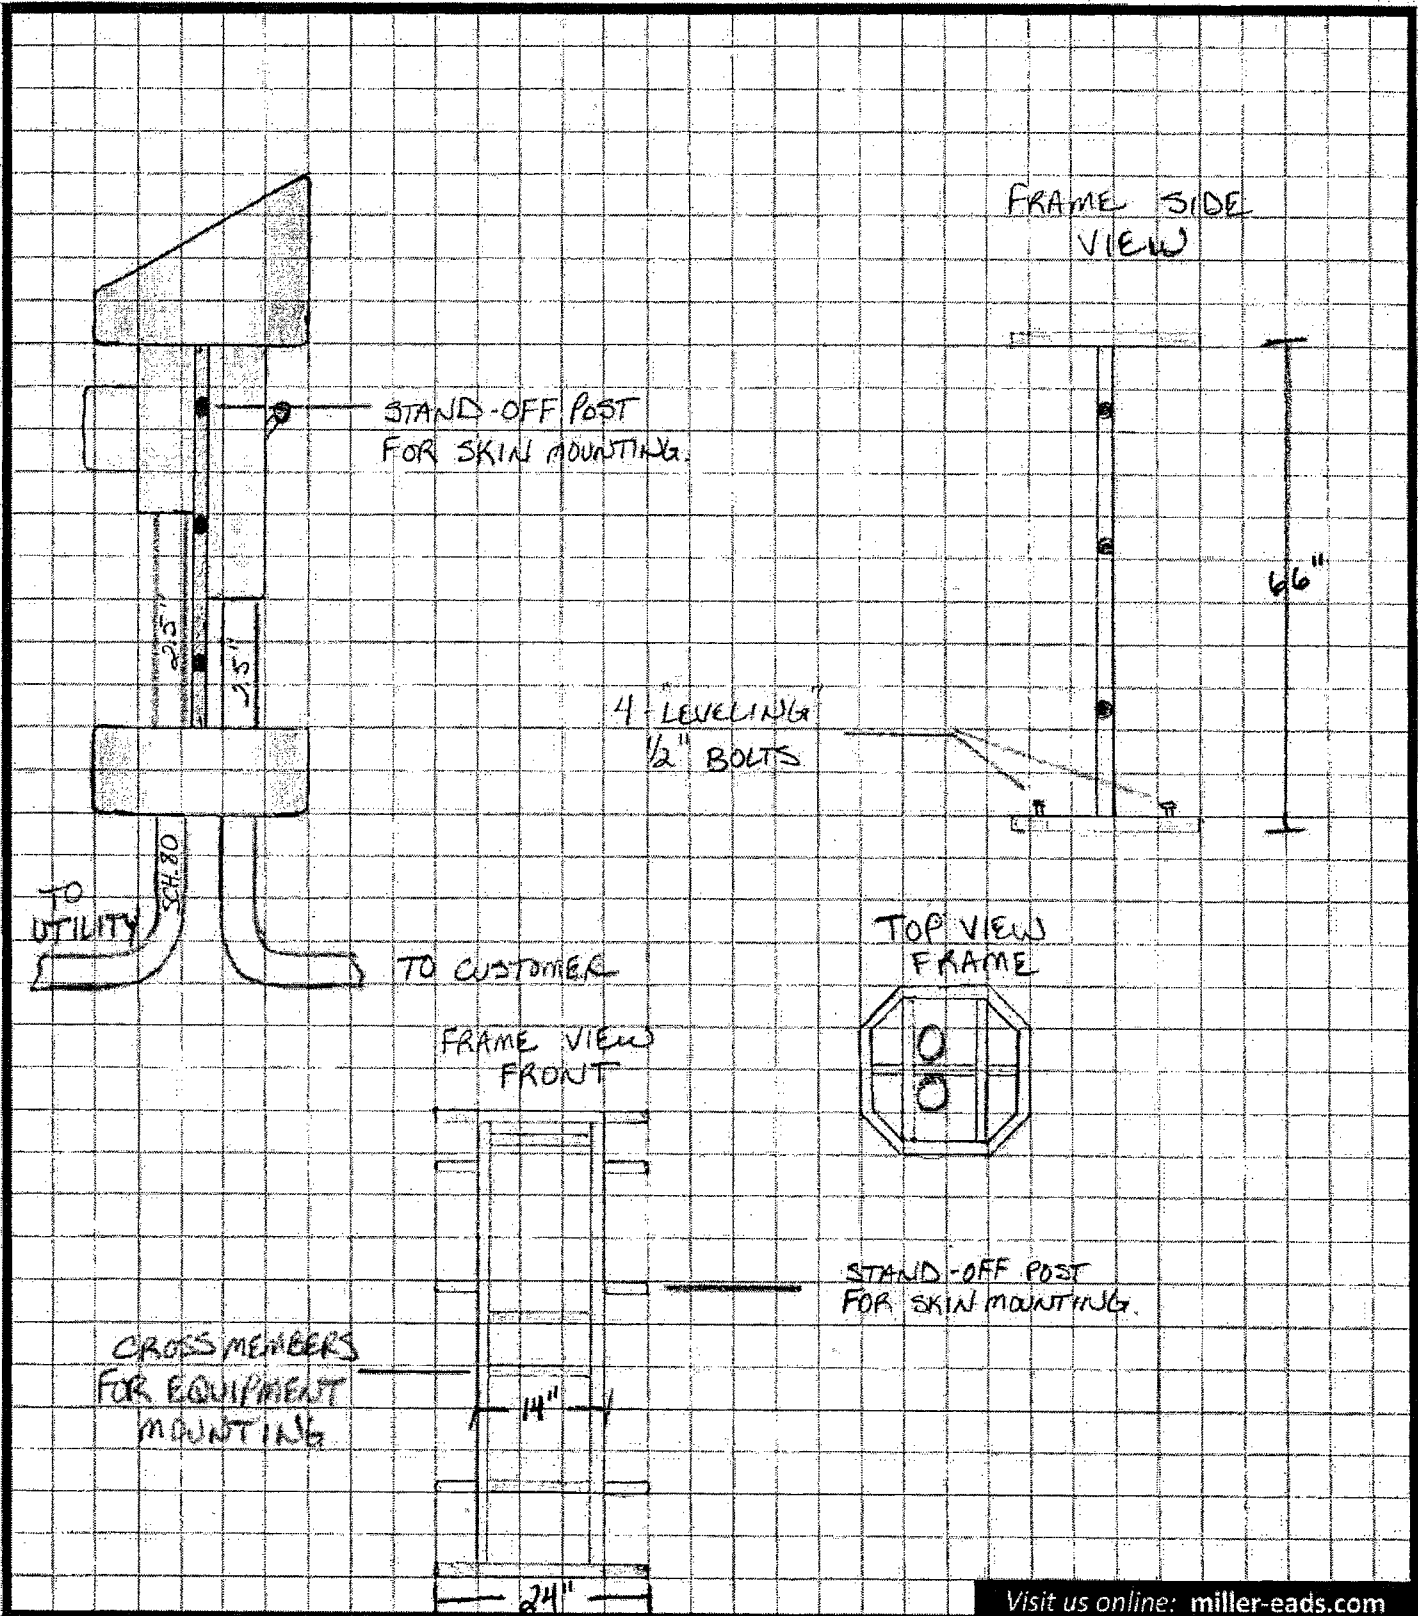 FRAME SIDE
VIEW
STAND-OFF POST
FOR SKIN MOUNTING.
66"
2.5"
2.5"
4-"LEVELING"
1/2" BOLTS
SCH. 80
TO
UTILITY
TO CUSTOMER
TOP VIEW
FRAME
FRAME VIEW
FRONT
STAND-OFF POST
FOR SKIN MOUNTING.
CROSS MEMBERS
FOR EQUIPMENT
MOUNTING
14"
24"
Visit us online: miller-eads.com